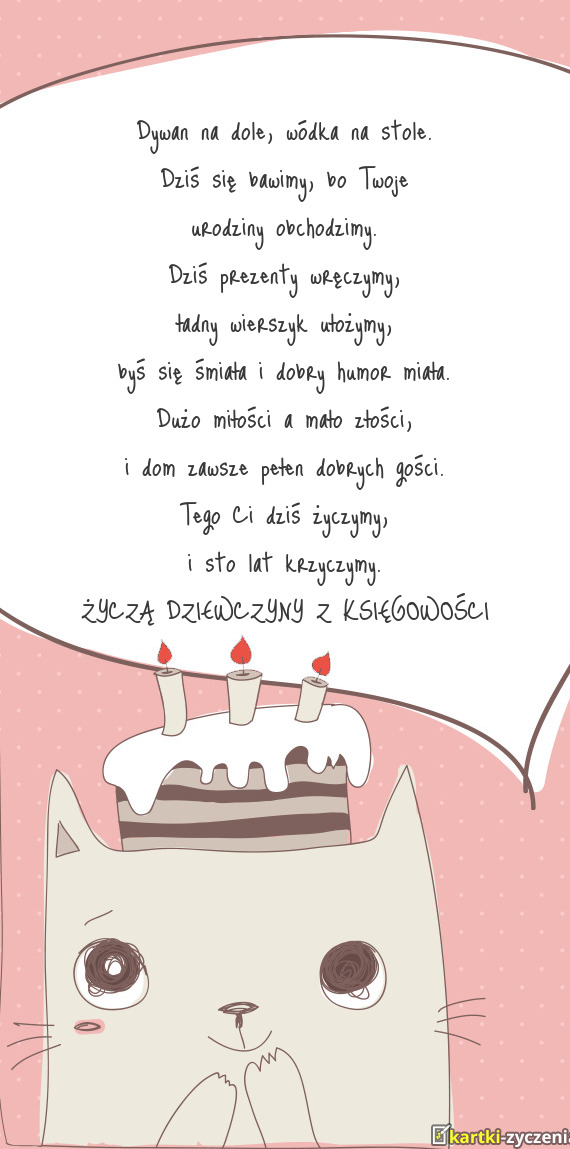 Dywan na dole, wódka na stole.
Dziś się bawimy, bo Twoje
urodziny obchodzimy.
Dziś prezenty wręczymy,
ładny wierszyk ułożymy,
byś się śmiała i dobry humor miała.
Dużo miłości a mało złości,
i dom zawsze pełen dobrych gości.
Tego Ci dziś życzymy,
i sto lat krzyczymy.
ŻYCZĄ DZIEWCZYNY Z KSIĘGOWOŚCI
kartki-zyczenia